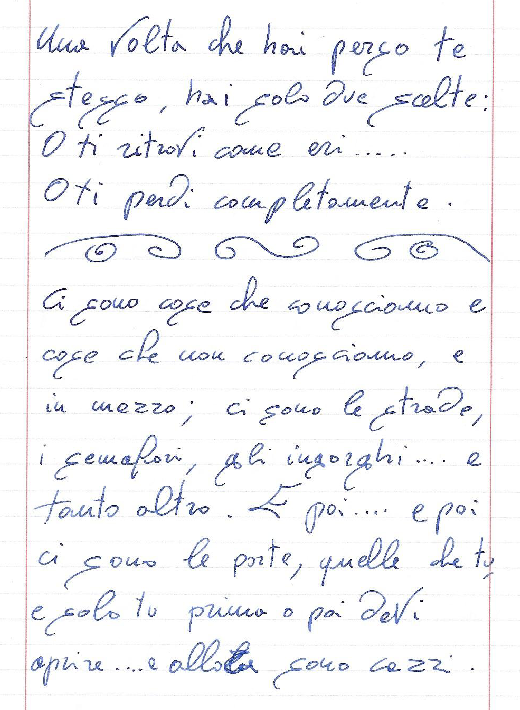 Una volta che hai perso te
stesso, hai solo due scelte:
O ti ritrovi come eri.....
O ti perdi completamente.
Ci sono cose che conosciamo e
cose che non conosciamo, e
in mezzo; ci sono le strade,
i semafori, gli ingorghi.... e
tanto altro. E poi.... e poi
ci sono le porte, quelle che tu,
e solo tu prima o poi devi
aprire....e allora sono cazzi.